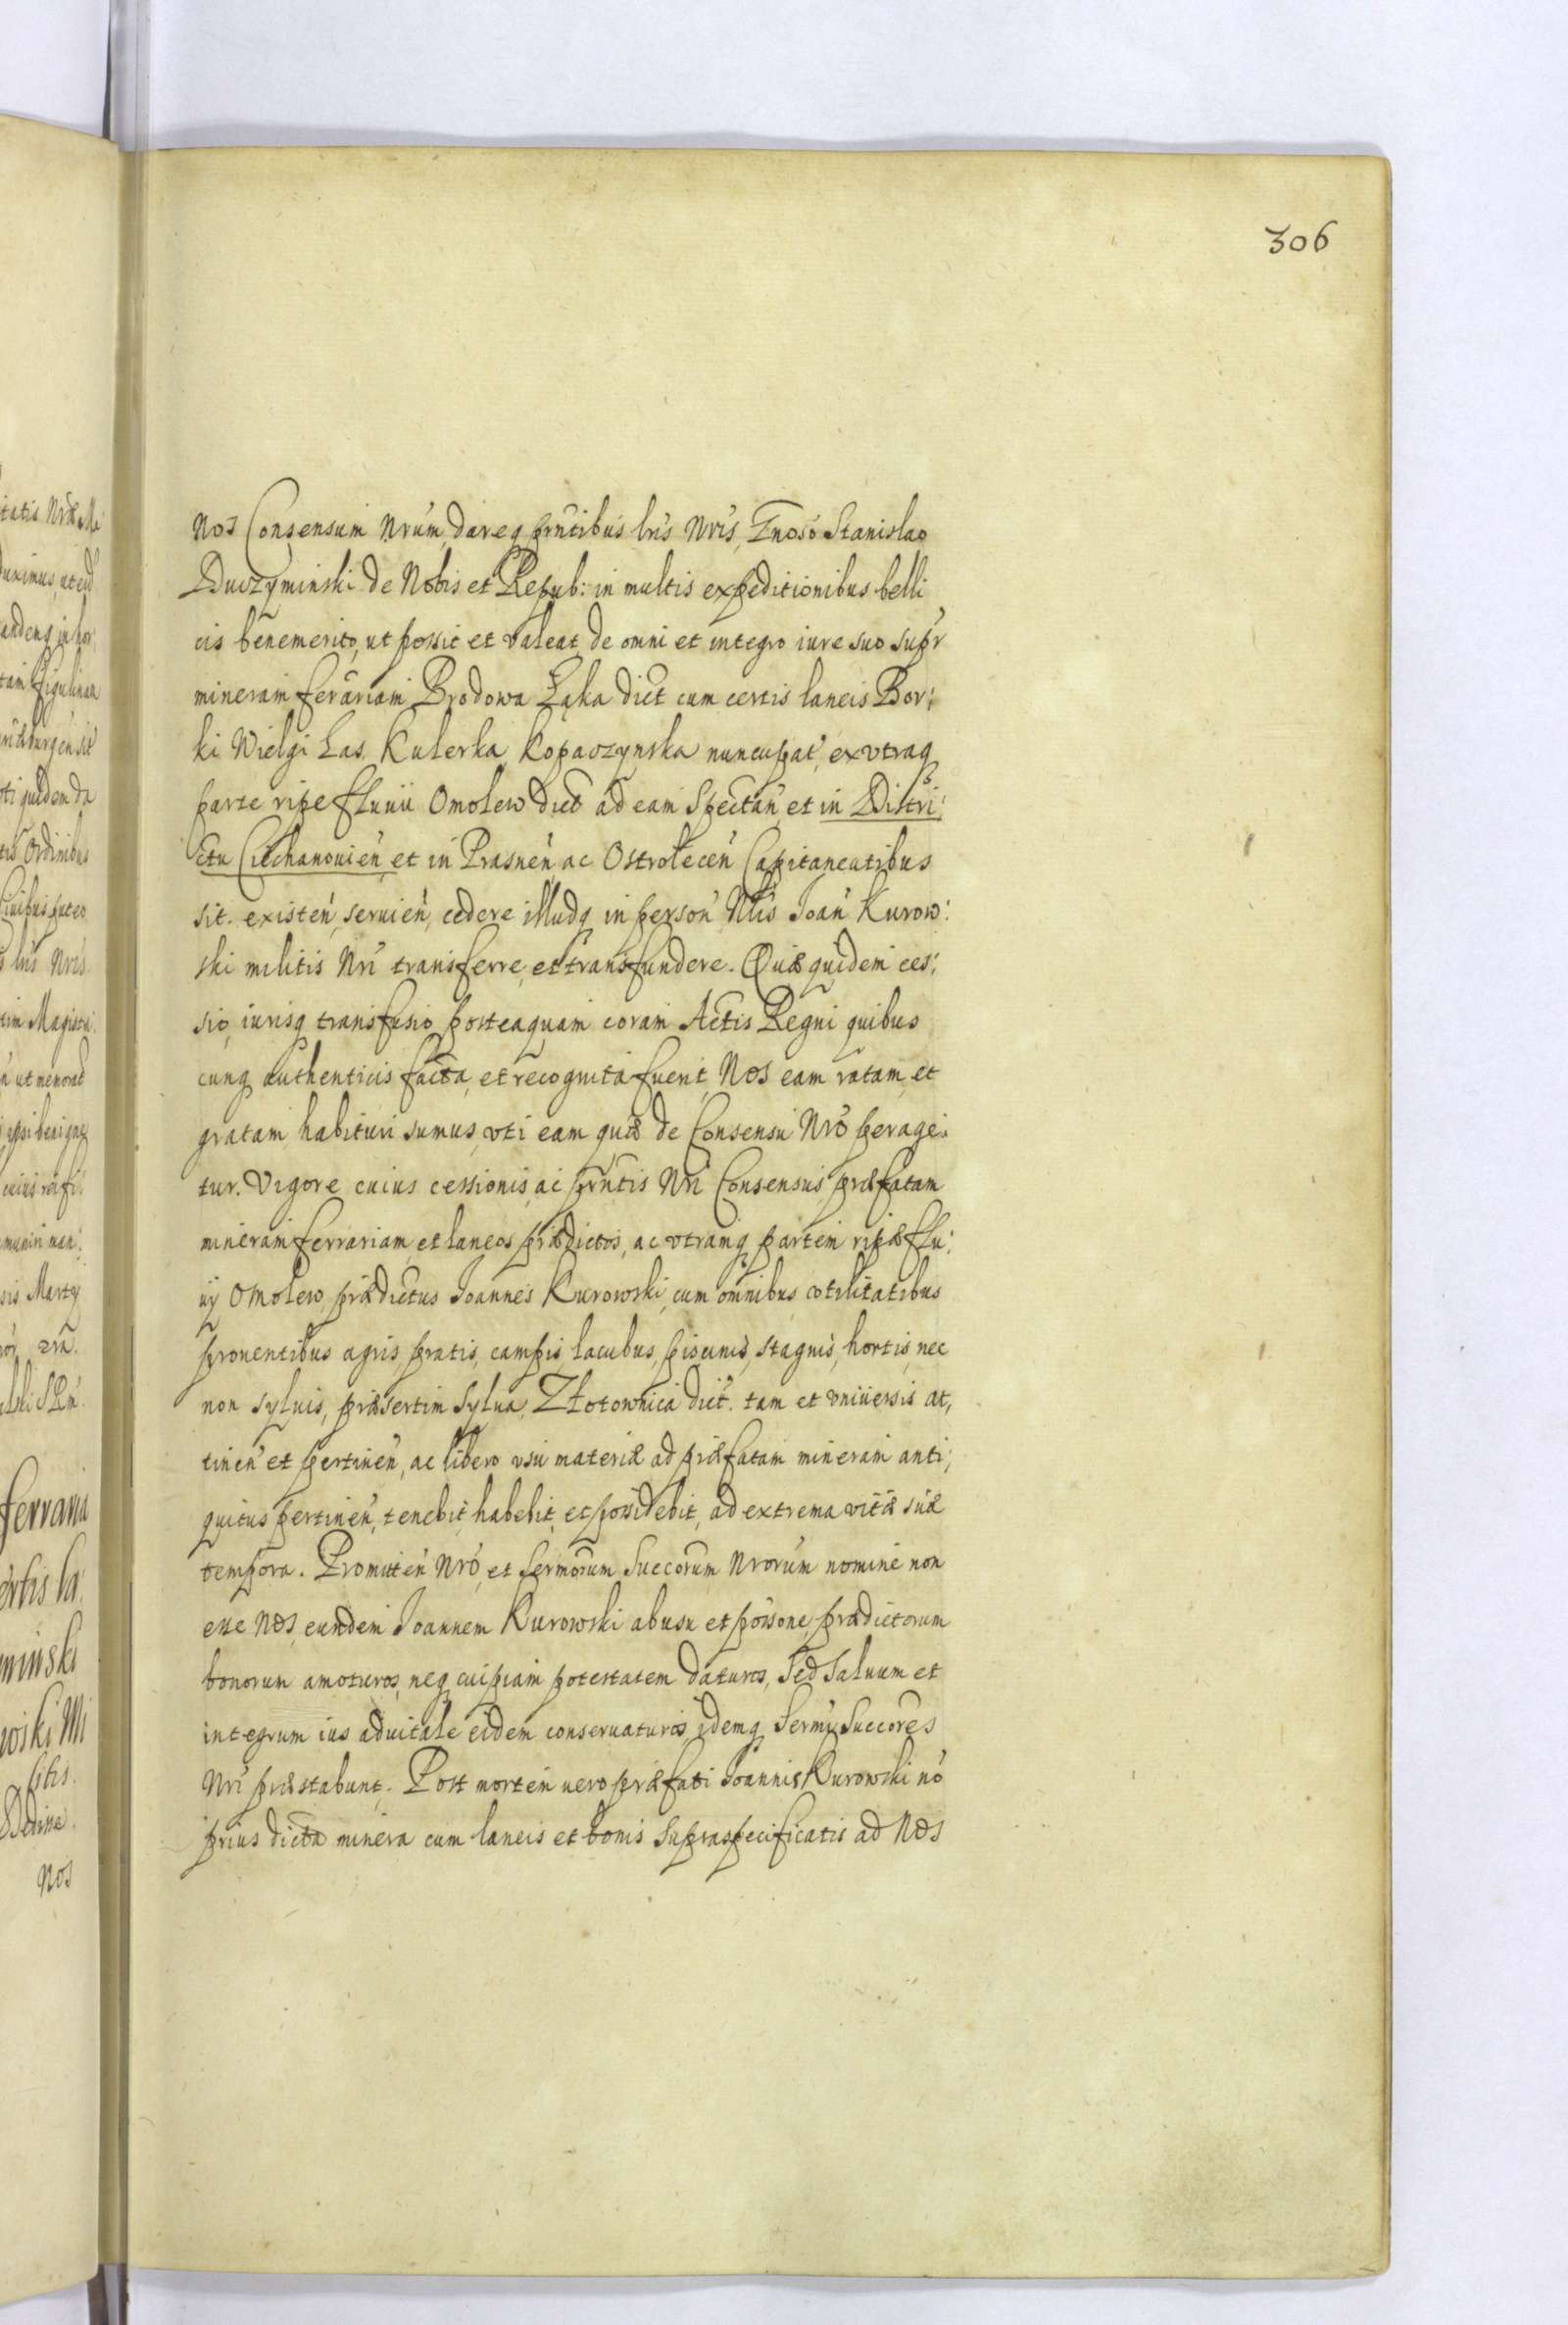 306
Nos Consensum Nrum, dareq prntibus lris Nris, Gnoso Stanislao
Duczyminski de Nobis et Repub: in multis expeditionibus belli
cis benemerito, ut possit et valeat de omni et integro iure suo supr
mineram ferariam Brodowa Łąka dict cum certis laneis Bor:
ki Wielgi Las Kulerka Kopaczynska nuncupat, ex vtraq
parte ripe fluuii Omolew dict ad eam Spectan et in Distri:
ctu Ciechanouien et in Prasnen ac Ostrolecen Capitaneatibus
sit. existen, seruien, cedere illudq in person Nlis Joan Kurow:
ski militis Nri transferre, et transfundere. Quæ quidem ces:
sio, iurisq transfusio posteaquam coram Actis Regni quibus
cunq authenticis facta, et recognita fuerit, Nos eam ratam et
gratam habituri sumus, vti eam quæ de Consensu Nro perage:
tur. Vigore cuius cessionis, ac prntis Nri Consensus præfatam
mineram ferrariam, et laneos prædictos, ac vtramq partem ripæ flu:
uij Omolew, prædictus Joannes Kurowski, cum omnibus vtilitatibus
prouentibus agris pratis, campis, lacubus, piscinis, stagnis, hortis, nec
non syluis, præsertim Sylua, Złotownica dict. tam et vniuersis at,
tinen et pertinen, ac libero vsu materiæ ad præfatam mineram anti,
quitus pertinen, tenebit, habebit, et possidebit, ad extrema vitæ suæ
tempora. Promitten Nro, et Sermorum Succorum Nrorum nomine non
esse Nos, eundem Joannem Kurowski ab usu et possone, prædictorum
bonorum amoturos, neq cuipiam potestatem daturos, Sed Saluum et
integrum ius aduitale eidem conseruaturos, idemq Sermi Succores
Nri præstabunt. Post mortem uero præfati Joannis Kurowski no
prius dicta minera cum laneis et bonis Supraspecificatis ad Nos